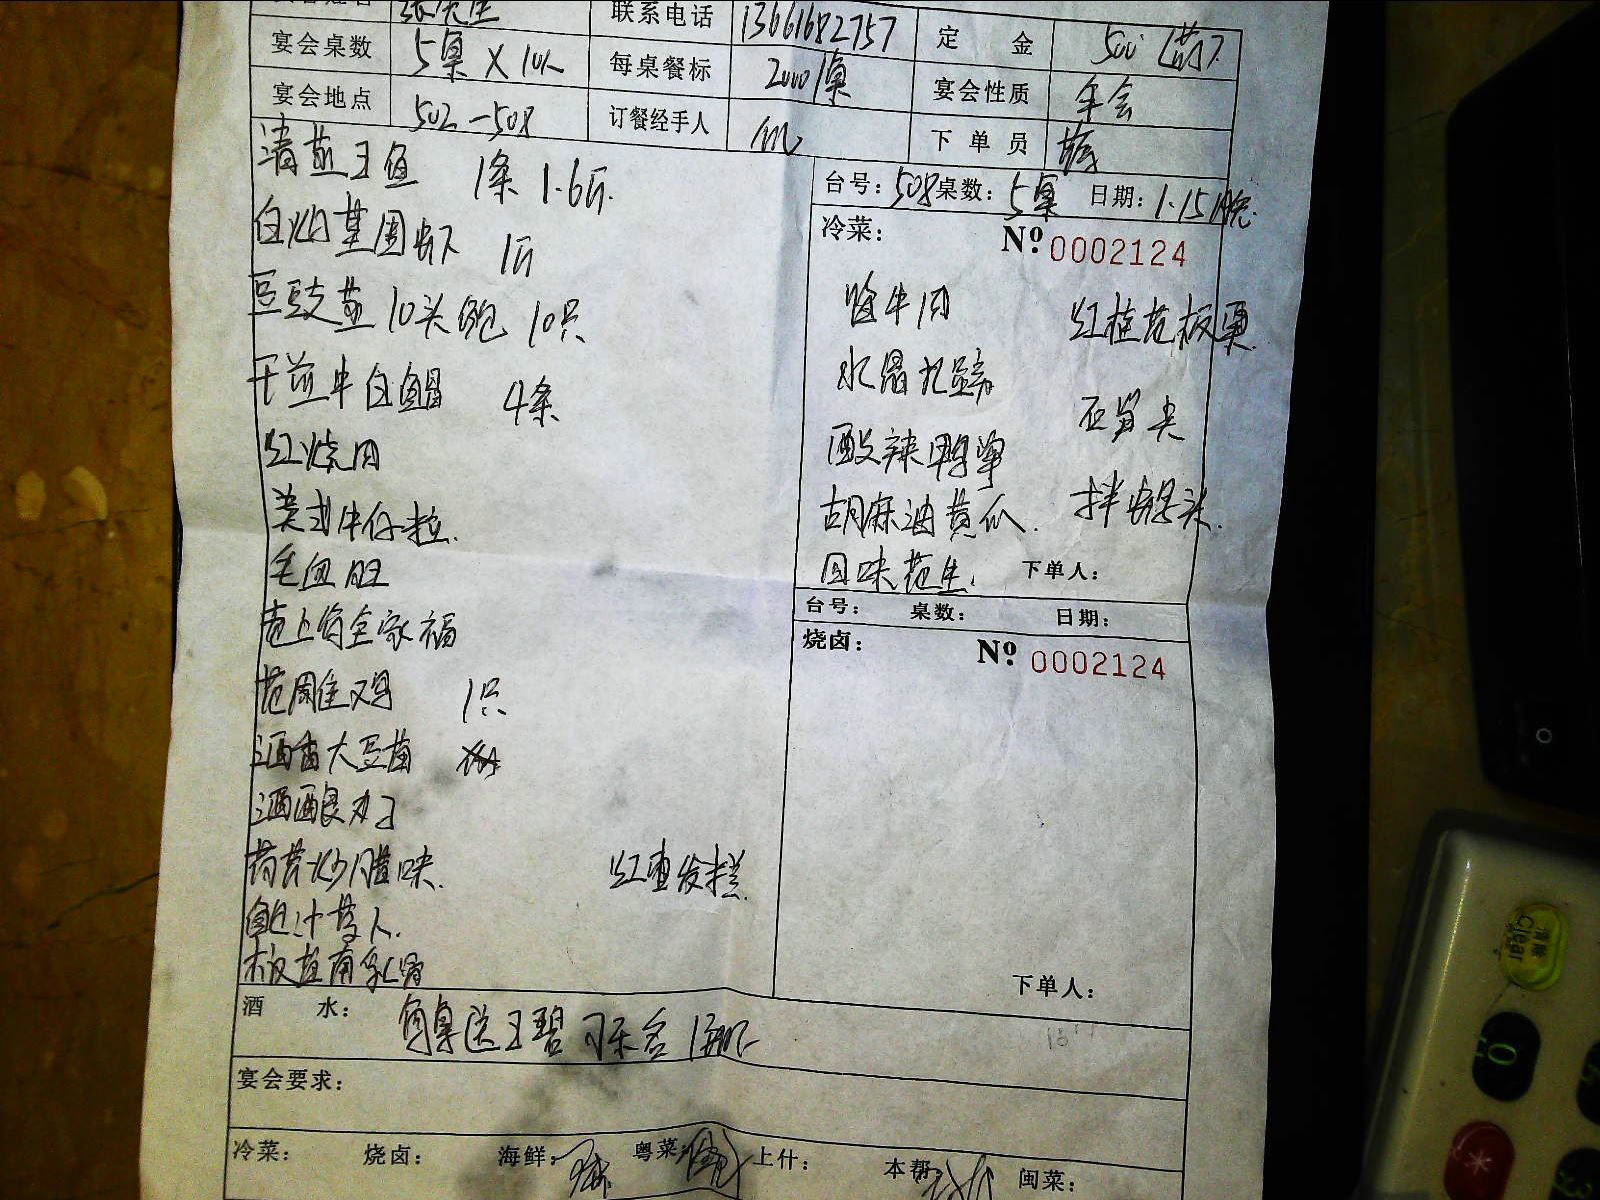 张先生 联系电话 13661682757 定 金 500
宴会桌数 5桌×10人 每桌餐标 2000/桌 宴会性质 年会
宴会地点 502-508 订餐经手人 下单员
清蒸王鱼 1条 1.6斤
白灼基围虾 1斤
豆豉蒸10头鲍 10只
干煎牛白鲳 4条
红烧肉
美式牛仔粒
毛血旺
老上海全家福
花雕鸡 1只
酒香大豆苗
酒酿丸子
荷芹炒腊味
鲍汁
南乳
红枣发糕
台号: 508 桌数: 5桌 日期: 1.15晚
冷菜: Nº 0002124
酱牛肉 红桂花板栗
水晶扎蹄
酸辣鸭掌
胡麻油黄瓜 拌蜇头
回味花生 下单人:
台号: 桌数: 日期:
烧卤: Nº 0002124
下单人:
酒 水: 每桌送王碧 可乐各1瓶
宴会要求:
冷菜: 烧卤: 海鲜: 粤菜: 上什: 本帮 闽菜:
清除
Clear
0
*